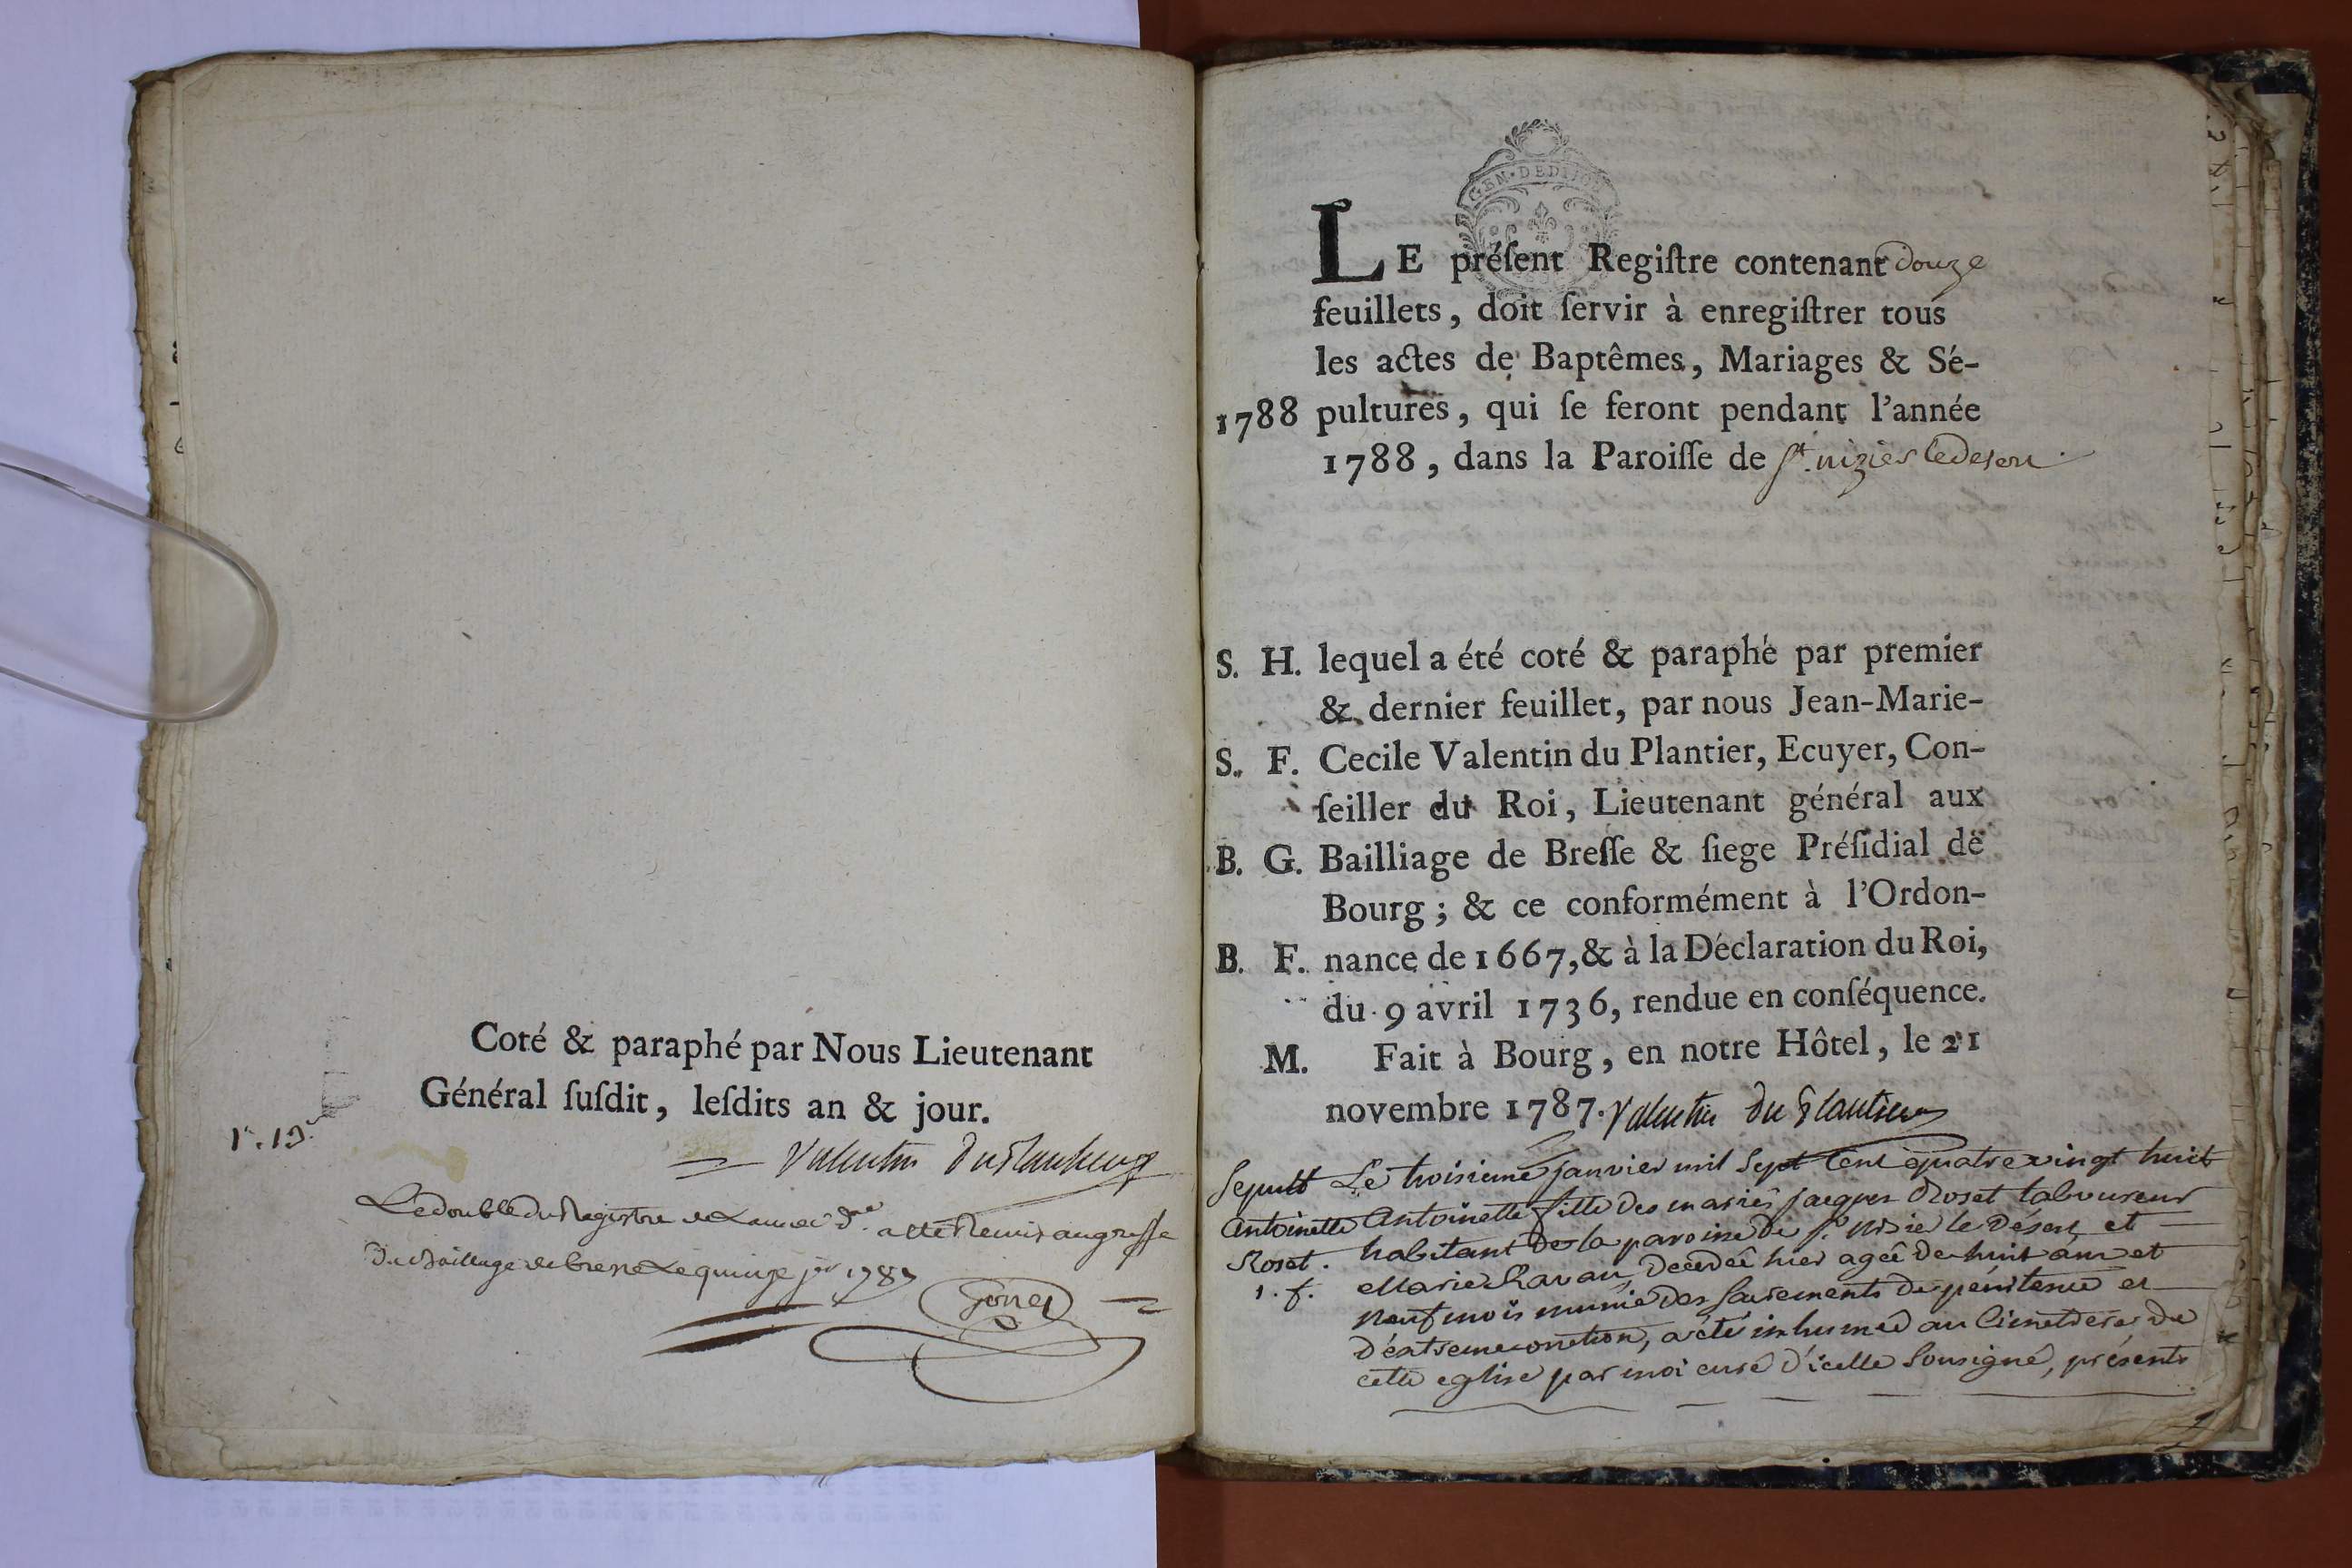 Coté & paraphé par Nous Lieutenant
Général ſuſdit, leſdits an & jour.
Valentin Du Plantier
Le double du Registre de L'année d. a été Remis au greffe
Du Bailliage de bresse Le quinze jer 178
LE préſent Regiſtre contenant douze
feuillets, doit ſervir à enregiſtrer tous
les actes de Baptêmes, Mariages & Sé-
1788 pultures, qui ſe feront pendant l'année
1788, dans la Paroiſſe de St. nizier le desert
S. H. lequel a été coté & paraphé par premier
& dernier feuillet, par nous Jean-Marie-
S. F. Cecile Valentin du Plantier, Ecuyer, Con-
ſeiller du Roi, Lieutenant général aux
B. G. Bailliage de Breſſe & ſiege Préſidial de
Bourg ; & ce conformément à l'Ordon-
B. F. nance de 1667, & à la Déclaration du Roi,
du 9 avril 1736, rendue en conſéquence.
M. Fait à Bourg, en notre Hôtel, le 21
novembre 1787. Valentin Du Plantier
Sepult Le troisieme janvier mil Sept Cent quatre vingt huit
Antoinette Antoinette fille des mariés jacques Roset laboureur
Roset. habitant de la paroisse de St. Nisie le Désert et
1. f. Marie Ravan, Decedeé hier ageé de huit ans et
neuf mois munie des Sacrements de pénitence et
D'extreme onction, a été inhumeé au Cimetiere de
cette eglise par moi curé d'icelle Sousigné, présents